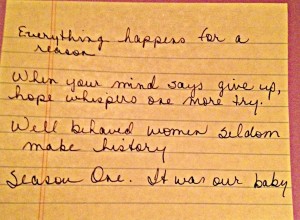 Everything happens for a
reason
When your mind says give up,
hope whispers one more try.
Well behaved women seldom
make history
Season One. It was our baby